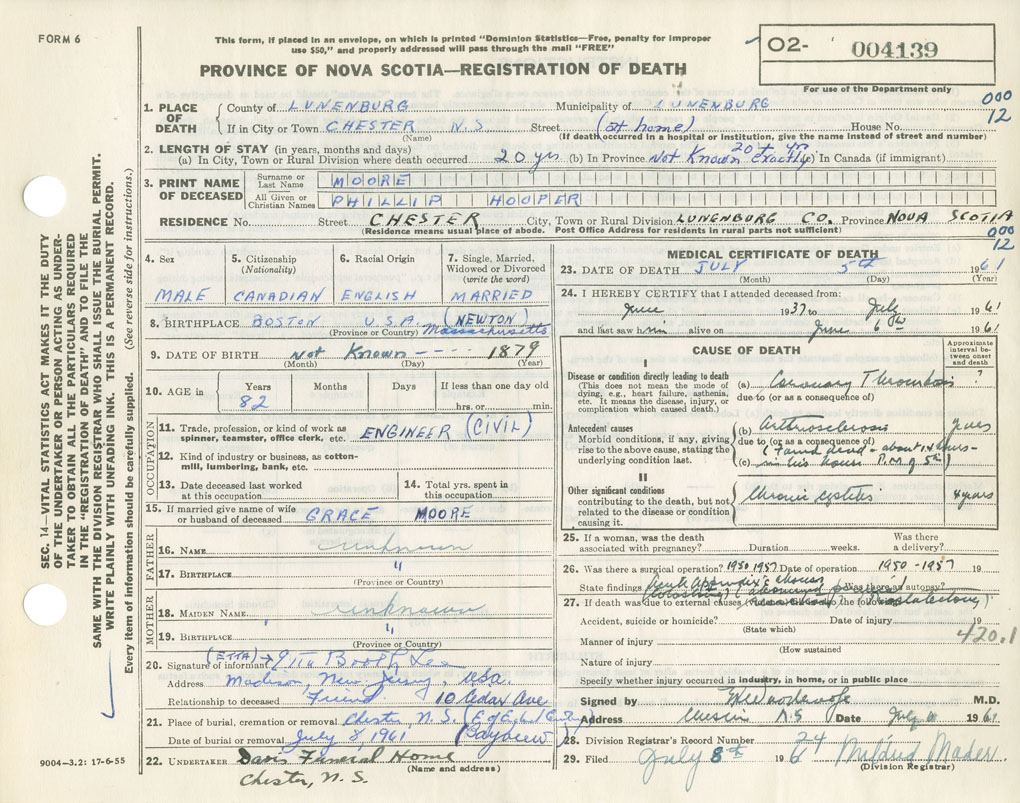 FORM 6
This form, if placed in an envelope, on which is printed "Dominion Statistics—Free, penalty for improper
use $50," and properly addressed will pass through the mail "FREE"
02- 004139
PROVINCE OF NOVA SCOTIA—REGISTRATION OF DEATH
For use of the Department only
000
12
1. PLACE OF DEATH
County of LUNENBURG Municipality of LUNENBURG
If in City or Town CHESTER N.S. Street (at home) House No.
(Name) (If death occurred in a hospital or institution, give the name instead of street and number)
2. LENGTH OF STAY (in years, months and days)
(a) In City, Town or Rural Division where death occurred 20 yrs (b) In Province Not Known exactly 20 + yrs (c) In Canada (if immigrant)
3. PRINT NAME OF DECEASED
Surname or Last Name MOORE
All Given or Christian Names PHILLIP HOOPER
RESIDENCE No. Street CHESTER City, Town or Rural Division LUNENBURG CO. Province NOVA SCOTIA
(Residence means usual place of abode. Post Office Address for residents in rural parts not sufficient)
000
12
4. Sex
MALE
5. Citizenship (Nationality)
CANADIAN
6. Racial Origin
ENGLISH
7. Single, Married, Widowed or Divorced (write the word)
MARRIED
8. BIRTHPLACE BOSTON U.S.A. (NEWTON)
(Province or Country) Massachusetts
9. DATE OF BIRTH Not Known ---- 1879
(Month) (Day) (Year)
10. AGE in Years Months Days If less than one day old
82 hrs. or min.
OCCUPATION
11. Trade, profession, or kind of work as spinner, teamster, office clerk, etc. ENGINEER (CIVIL)
12. Kind of industry or business, as cotton-mill, lumbering, bank, etc.
13. Date deceased last worked at this occupation
14. Total yrs. spent in this occupation
15. If married give name of wife or husband of deceased GRACE MOORE
FATHER
16. NAME unknown
17. BIRTHPLACE "
(Province or Country)
MOTHER
18. MAIDEN NAME unknown
19. BIRTHPLACE "
(Province or Country)
20. Signature of informant (ETTA) → Etta Booth Lee
Address Madison, New Jersey, USA.
Relationship to deceased Friend 10 Cedar Ave
21. Place of burial, cremation or removal Chester N.S.
Date of burial or removal July 8 1961 (Bayview)
22. UNDERTAKER Davis Funeral Home
(Name and address)
Chester, N.S.
MEDICAL CERTIFICATE OF DEATH
23. DATE OF DEATH JULY 5th 1961
(Month) (Day) (Year)
24. I HEREBY CERTIFY that I attended deceased from:
June 1937 to July 1961
and last saw him alive on June 6th 1961
CAUSE OF DEATH
Approximate interval between onset and death
I
Disease or condition directly leading to death
(This does not mean the mode of dying, e.g., heart failure, asthenia, etc. It means the disease, injury, or complication which caused death.)
(a) Coronary Thrombosis ?
due to (or as a consequence of)
Antecedent causes
Morbid conditions, if any, giving rise to the above cause, stating the underlying condition last.
(b) Arthrosclerosis yrs
due to (or as a consequence of)
(Found dead - about 14 hours -
(c) in his house P.M. of 5th)
II
Other significant conditions
contributing to the death, but not related to the disease or condition causing it.
Chronic cystitis 4 years
25. If a woman, was the death associated with pregnancy? Duration weeks. Was there a delivery?
26. Was there a surgical operation? 1950 1957 Date of operation 1950 - 1957 19
State findings Acute Appendix Was there an autopsy?
27. If death was due to external causes to the following
Accident, suicide or homicide? Date of injury 19
(State which)
420.1
Manner of injury
(How sustained
Nature of injury
Specify whether injury occurred in industry, in home, or in public place
Signed by M.D.
Address Chester N.S Date July 1961
28. Division Registrar's Record Number 24
29. Filed July 8th 196 Mildred Mader
(Division Registrar)
SEC. 14—VITAL STATISTICS ACT MAKES IT THE DUTY
OF THE UNDERTAKER OR PERSON ACTING AS UNDER-
TAKER TO OBTAIN ALL THE PARTICULARS REQUIRED
IN THE "REGISTRATION OF DEATH" AND TO FILE THE
SAME WITH THE DIVISION REGISTRAR WHO SHALL ISSUE THE BURIAL PERMIT.
WRITE PLAINLY WITH UNFADING INK. THIS IS A PERMANENT RECORD.
Every item of information should be carefully supplied. (See reverse side for instructions.)
9004—3.2: 17-6-55